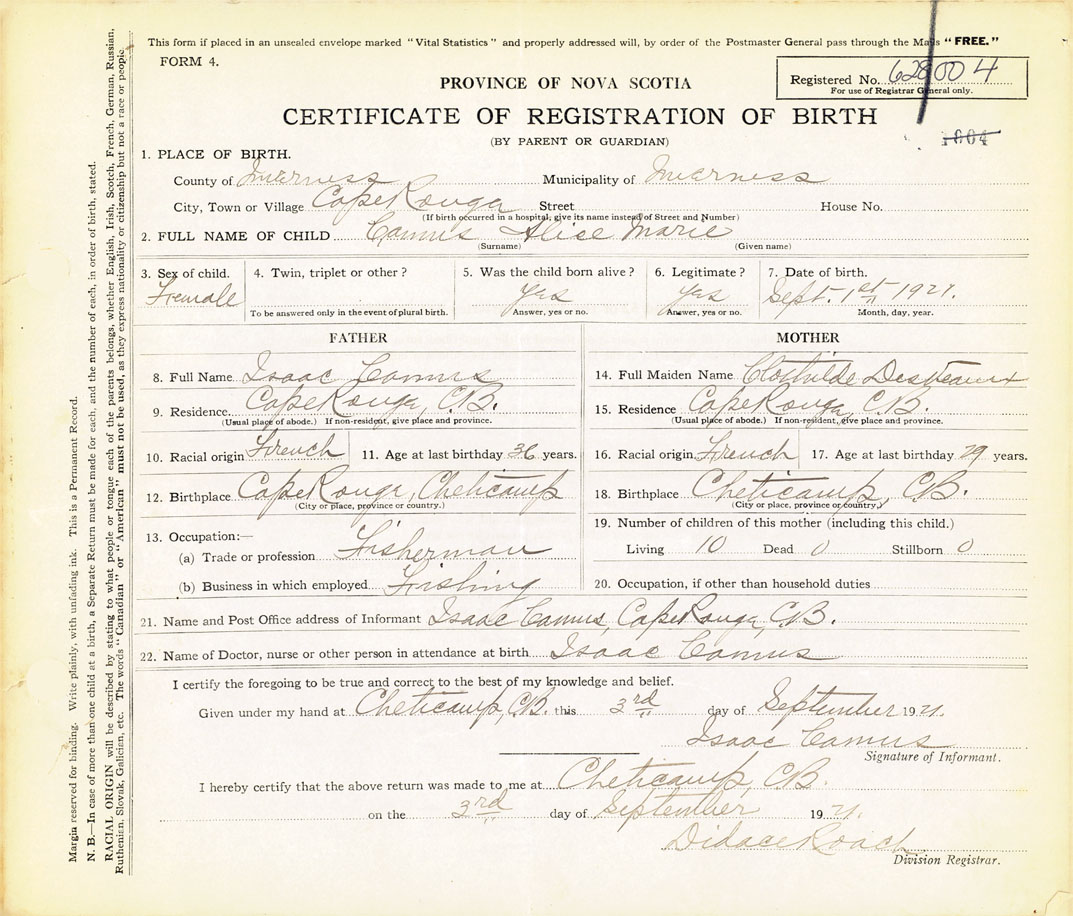 This form if placed in an unsealed envelope marked "Vital Statistics" and properly addressed will, by order of the Postmaster General pass through the Mails "FREE."
FORM 4.
PROVINCE OF NOVA SCOTIA
Registered No. 628004
For use of Registrar General only.
CERTIFICATE OF REGISTRATION OF BIRTH
(BY PARENT OR GUARDIAN)
1. PLACE OF BIRTH.
County of Inverness Municipality of Inverness
City, Town or Village Cape Rouge Street House No.
(If birth occurred in a hospital, give its name instead of Street and Number)
2. FULL NAME OF CHILD Camus Alice Marie
(Surname) (Given name)
3. Sex of child. 4. Twin, triplet or other? 5. Was the child born alive? 6. Legitimate? 7. Date of birth.
Female yes yes Sept. 1st 1921.
To be answered only in the event of plural birth. Answer, yes or no. Answer, yes or no. Month, day, year.
FATHER
8. Full Name Isaac Camus
9. Residence Cape Rouge, C.B.
(Usual place of abode.) If non-resident, give place and province.
10. Racial origin French 11. Age at last birthday 36 years.
12. Birthplace Cape Rouge, Cheticamp
(City or place, province or country.)
13. Occupation:—
(a) Trade or profession Fisherman
(b) Business in which employed Fishing
MOTHER
14. Full Maiden Name Clothilde Desveaux
15. Residence Cape Rouge, C.B.
(Usual place of abode.) If non-resident, give place and province.
16. Racial origin French 17. Age at last birthday 29 years.
18. Birthplace Cheticamp, C.B.
(City or place, province or country.)
19. Number of children of this mother (including this child.)
Living 10 Dead 0 Stillborn 0
20. Occupation, if other than household duties
21. Name and Post Office address of Informant Isaac Camus, Cape Rouge, C.B.
22. Name of Doctor, nurse or other person in attendance at birth Isaac Camus
I certify the foregoing to be true and correct to the best of my knowledge and belief.
Given under my hand at Cheticamp, C.B. this 3rd day of September 1921.
Isaac Camus
Signature of Informant.
I hereby certify that the above return was made to me at Cheticamp, C.B.
on the 3rd day of September 1921.
Didace Roach
Division Registrar.
Margin reserved for binding. Write plainly, with unfading ink. This is a Permanent Record.
N. B.—In case of more than one child at a birth, a Separate Return must be made for each, and the number of each, in order of birth, stated.
RACIAL ORIGIN will be described by stating to what people or tongue each of the parents belongs, whether English, Irish, Scotch, French, German, Russian,
Ruthenian, Slovak, Galician, etc. The words "Canadian" or "American" must not be used, as they express nationality or citizenship but not a race or people.